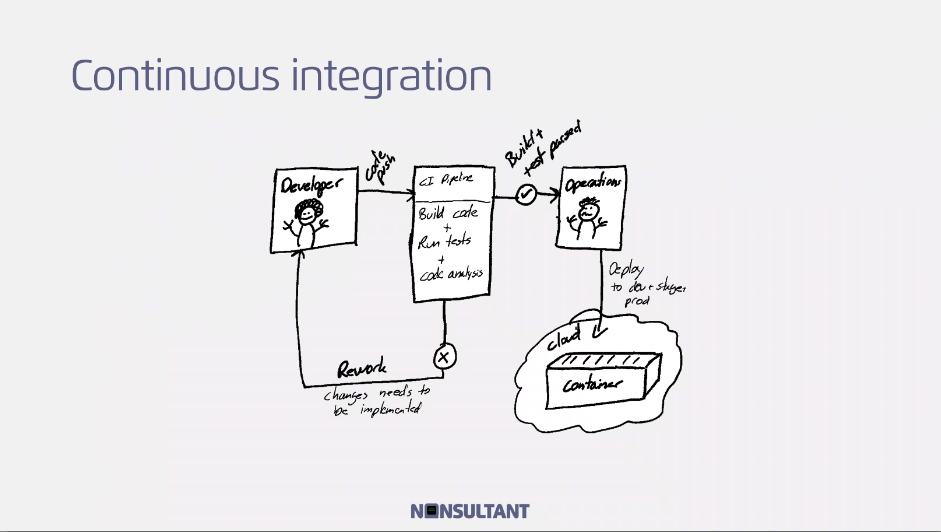 Continuous integration
Developer
Code
push
CI Pipeline
Build code
+
Run tests
+
Code analysis
Build +
test passed
Operation
Deploy
to dev + stage +
prod
Cloud
Container
Rework
Changes needs to
be implemented
NONSULTANT